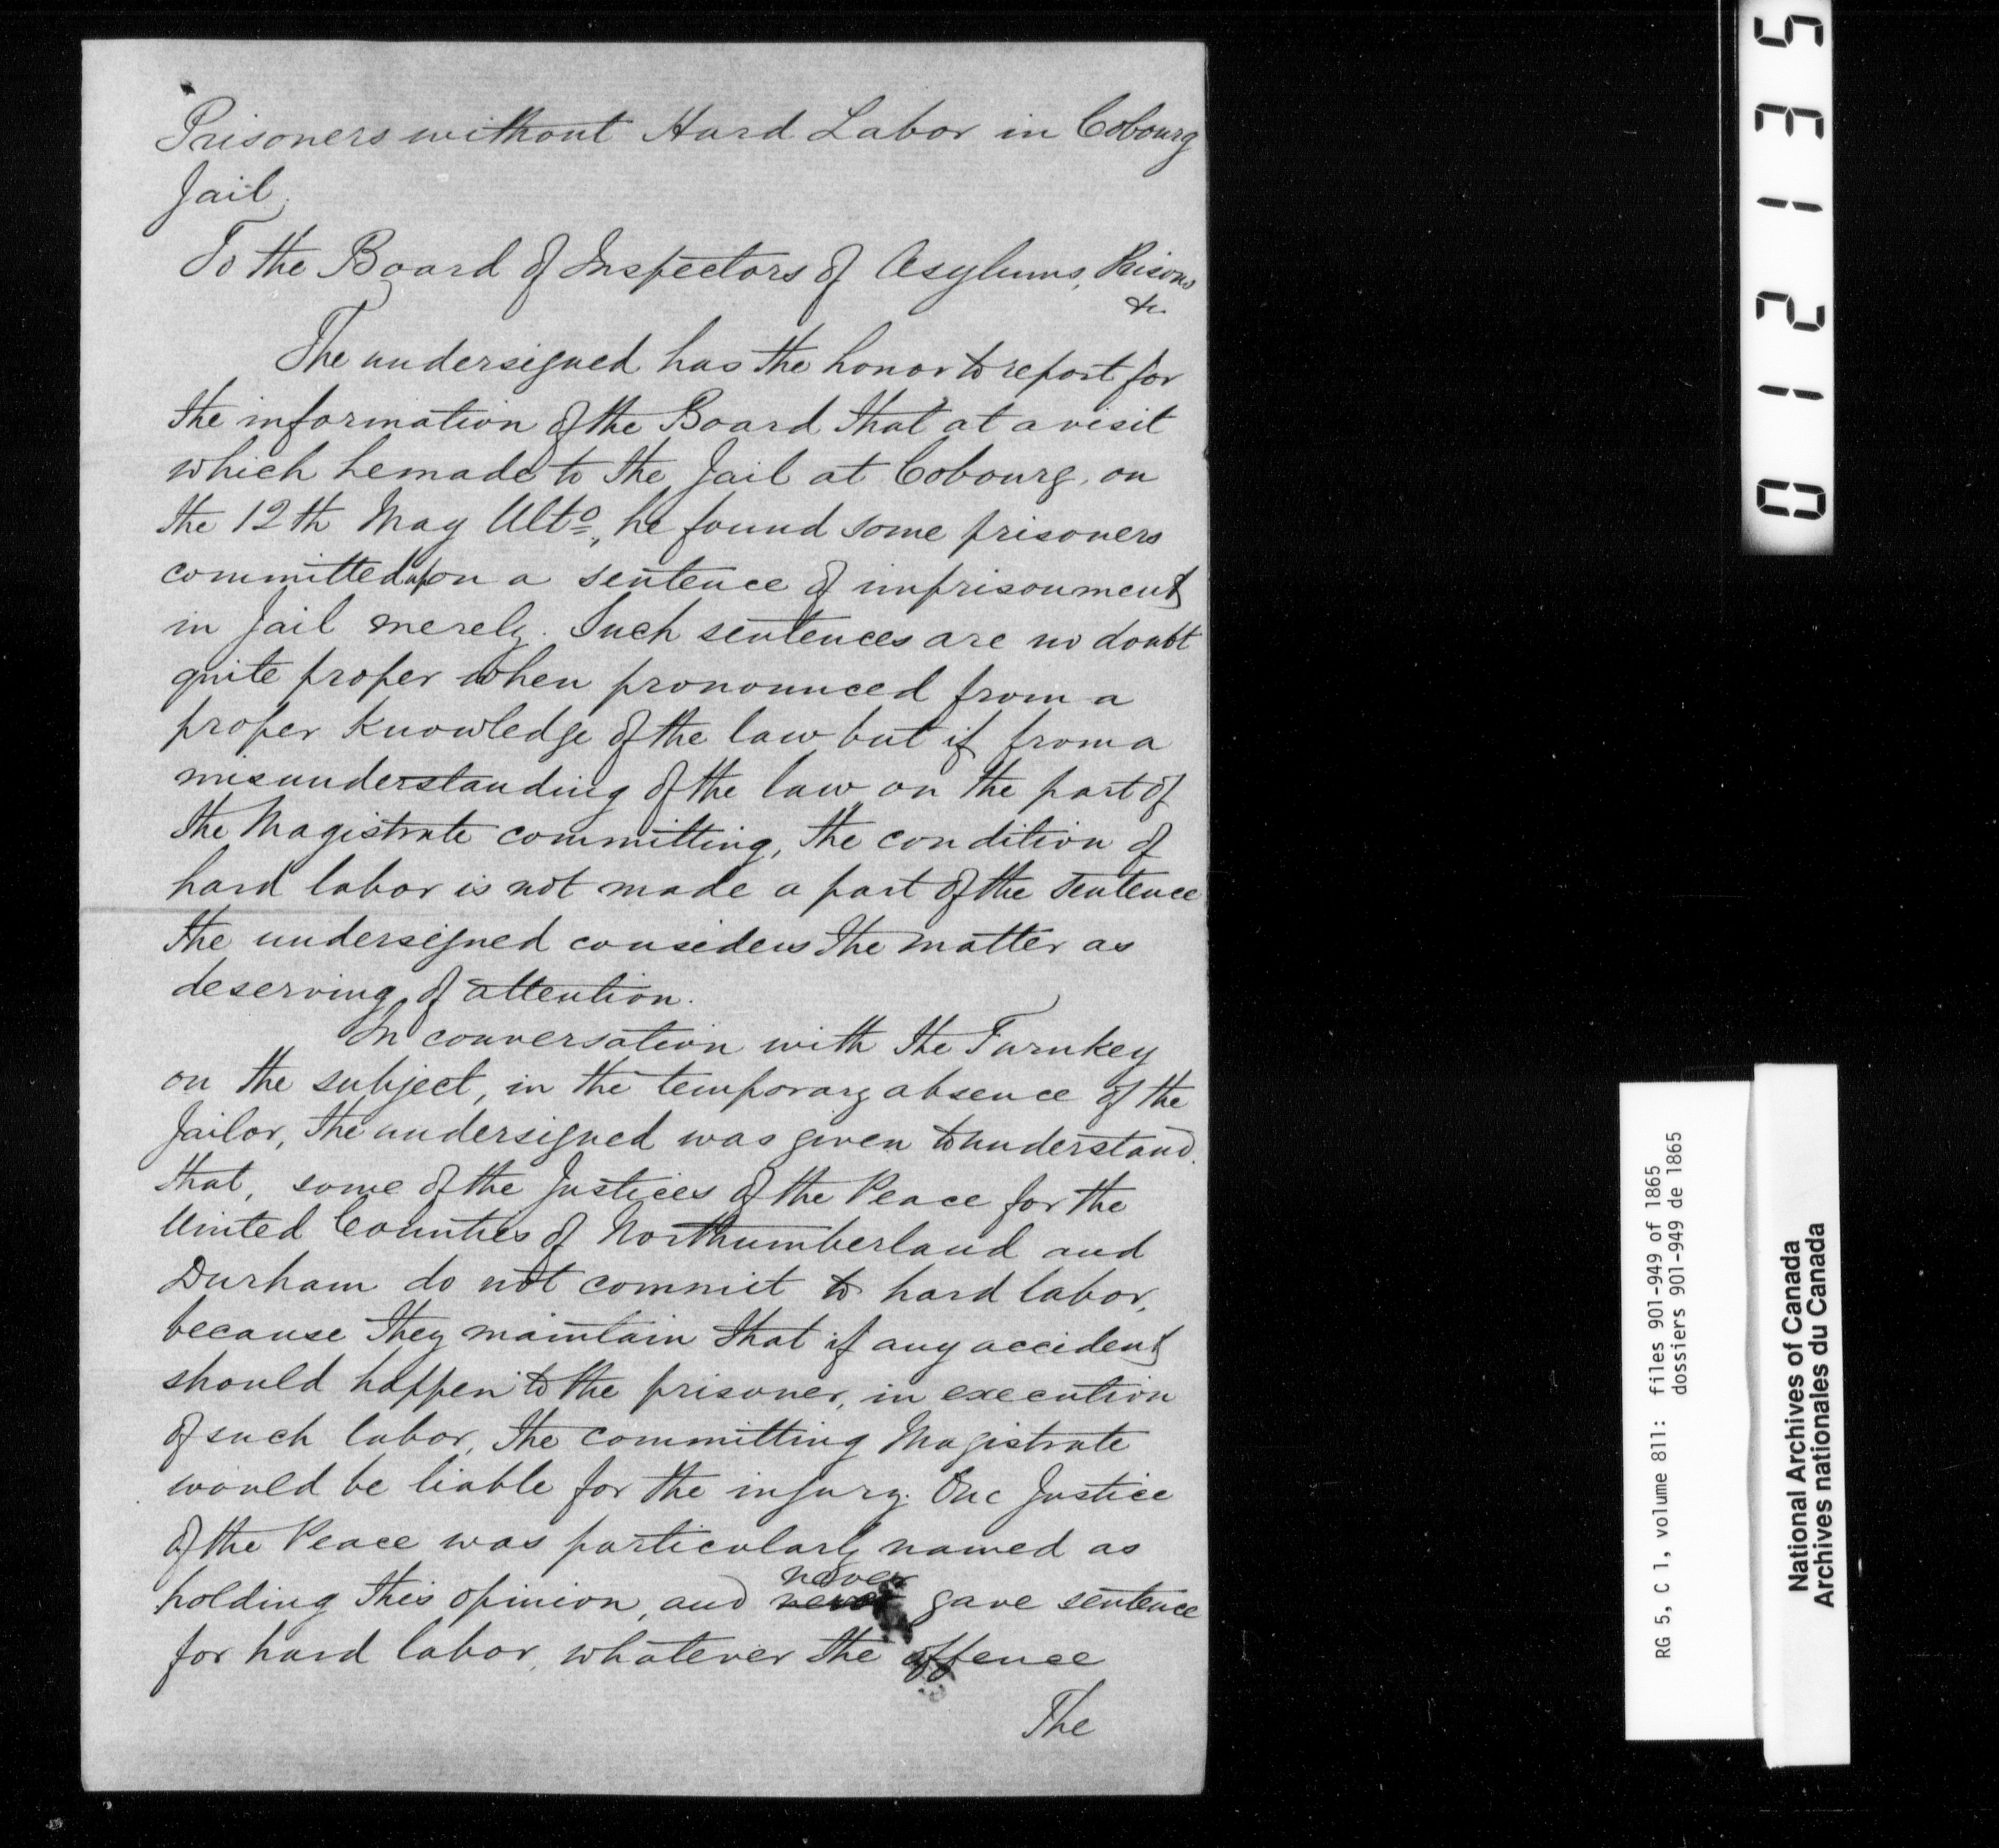 Prisoners without Hard Labor in Cobourg
Jail.
To the Board of Inspectors of Asylums, Prisons
&c.
The undersigned has the honor to report for
the information of the Board that at a visit
which he made to the Jail at Cobourg, on
the 12th May Ulto, he found some prisoners
committed upon a sentence of imprisonment
in Jail merely. Such sentences are no doubt
quite proper when pronounced from a
proper knowledge of the law but if from a
misunderstanding of the law on the part of
the Magistrate committing, the condition of
hard labor is not made a part of the sentence
the undersigned considers the matter as
deserving of attention.
In conversation with the Turnkey
on the subject, in the temporary absence of the
Jailor, the undersigned was given to understand
that, some of the Justices of the Peace for the
United Counties of Northumberland and
Durham do not commit to hard labor,
because they maintain that if any accident
should happen to the prisoner, in execution
of such labor, the committing Magistrate
would be liable for the injury. One Justice
of the Peace was particularly named as
holding this opinion, and never never gave sentence
for hard labor, whatever the offence
The
012135
RG 5, C 1, volume 811: files 901-949 of 1865
dossiers 901-949 de 1865
National Archives of Canada
Archives nationales du Canada